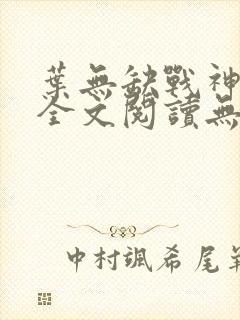 葉無缺戰神
全文閱讀無
中村颯希尾氣